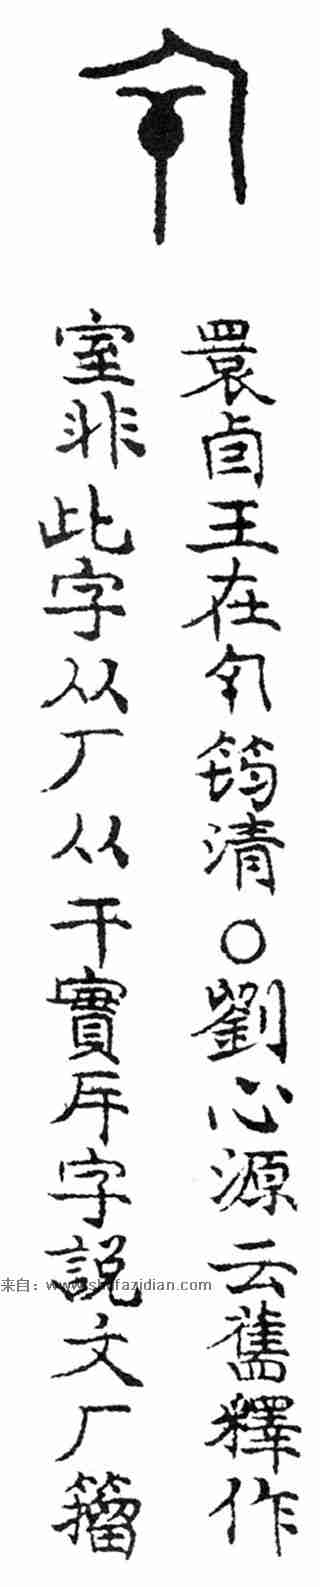 睘卣王在筠清○劉心源云舊釋作
室非此字从厂从干實厈字說文厂籀
来自：www.shufazidian.com